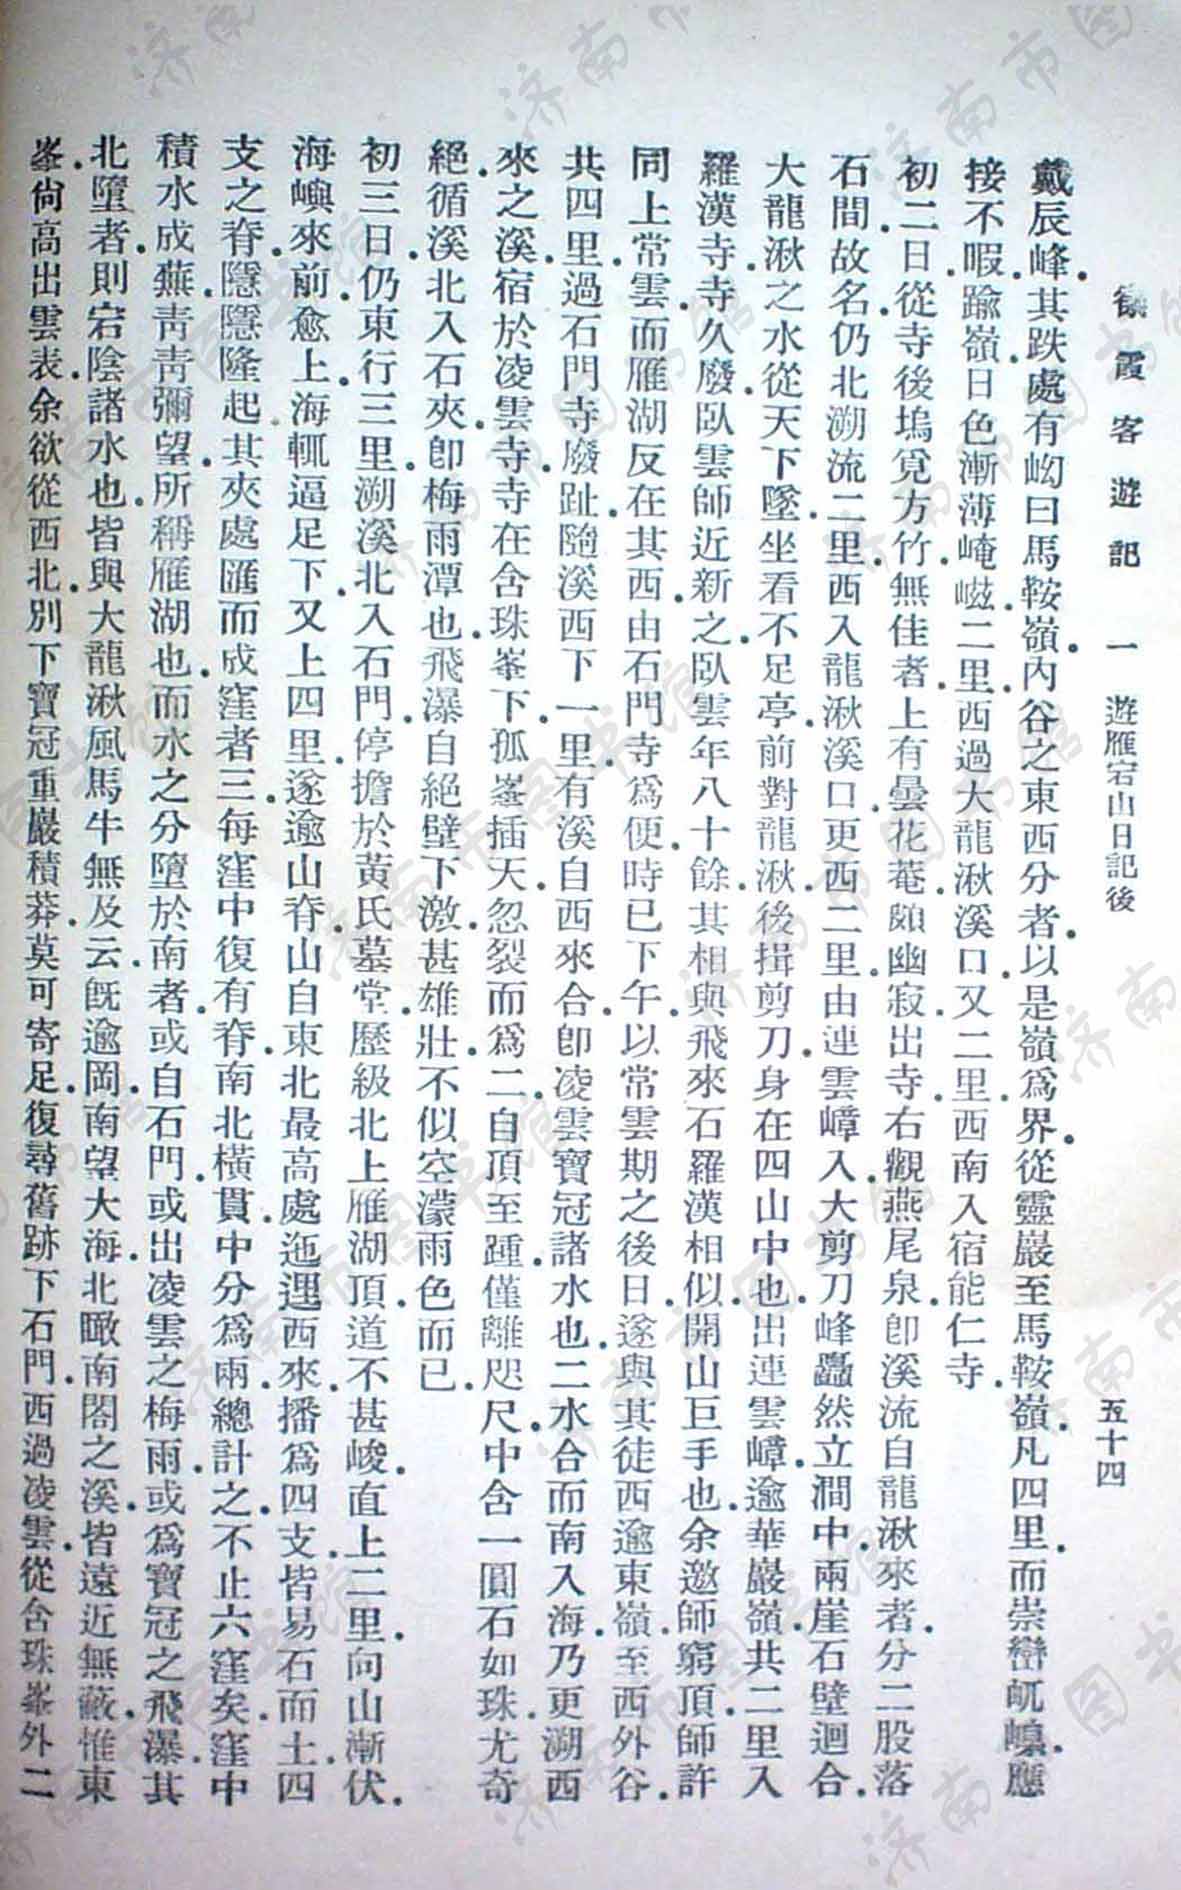 徐霞客遊記一　遊雁宕山日記後　五十四
戴辰峰．其跌處有坳曰馬鞍嶺．內谷之東西分者．以是嶺爲界．從靈巖至馬鞍嶺．凡四里．而崇巒屼嵲．應
接不暇．踰嶺．日色漸薄崦嵫．二里．西過大龍湫溪口．又二里．西南入宿能仁寺．
初二日．從寺後塢覓方竹．無佳者．上有曇花菴．頗幽寂．出寺右．觀燕尾泉．卽溪流自龍湫來者．分二股落
石間．故名．仍北溯流二里．西入龍湫溪口．更西二里．由連雲嶂入．大剪刀峰矗然立澗中．兩崖石壁迴合．
大龍湫之水．從天下墜．坐看不足亭．前對龍湫．後揖剪刀．身在四山中也．出連雲嶂．逾華巖嶺．共二里．入
羅漢寺．寺久廢．臥雲師近新之．臥雲年八十餘．其相與飛來石羅漢相似．開山巨手也．余邀師窮頂．師許
同上常雲．而雁湖反在其西．由石門寺爲便．時已下午．以常雲期之後日．遂與其徒西逾東嶺．至西外谷．
共四里．過石門寺廢趾．隨溪西下一里．有溪自西來合．卽凌雲寶冠諸水也．二水合而南入海．乃更溯西
來之溪．宿於凌雲寺．寺在含珠峯下．孤峯插天．忽裂而爲二．自頂至踵．僅離咫尺．中含一圓石如珠．尤奇
絕．循溪北入石夾．卽梅雨潭也．飛瀑自絕壁下激．甚雄壯．不似空濛雨色而已．
初三日．仍東行三里．溯溪北入石門．停擔於黃氏墓堂．歷級北上雁湖頂．道不甚峻．直上二里．向山漸伏．
海嶼來前．愈上．海輒逼足下．又上四里．遂逾山脊．山自東北最高處迤邐西來．播爲四支．皆易石而土．四
支之脊．隱隱隆起．其夾處匯而成窪者三．每窪中復有脊．南北橫貫．中分爲兩．總計之．不止六窪矣．窪中
積水成蕪．青青彌望．所稱雁湖也．而水之分墮於南者．或自石門．或出凌雲之梅雨．或爲寶冠之飛瀑．其
北墮者．則宕陰諸水也．皆與大龍湫風馬牛無及云．旣逾岡．南望大海．北瞰南閣之溪．皆遠近無蔽．惟東
峯尙高出雲表．余欲從西北別下寶冠．重巖積莽．莫可寄足．復尋舊跡下石門．西過凌雲．從含珠峯外二